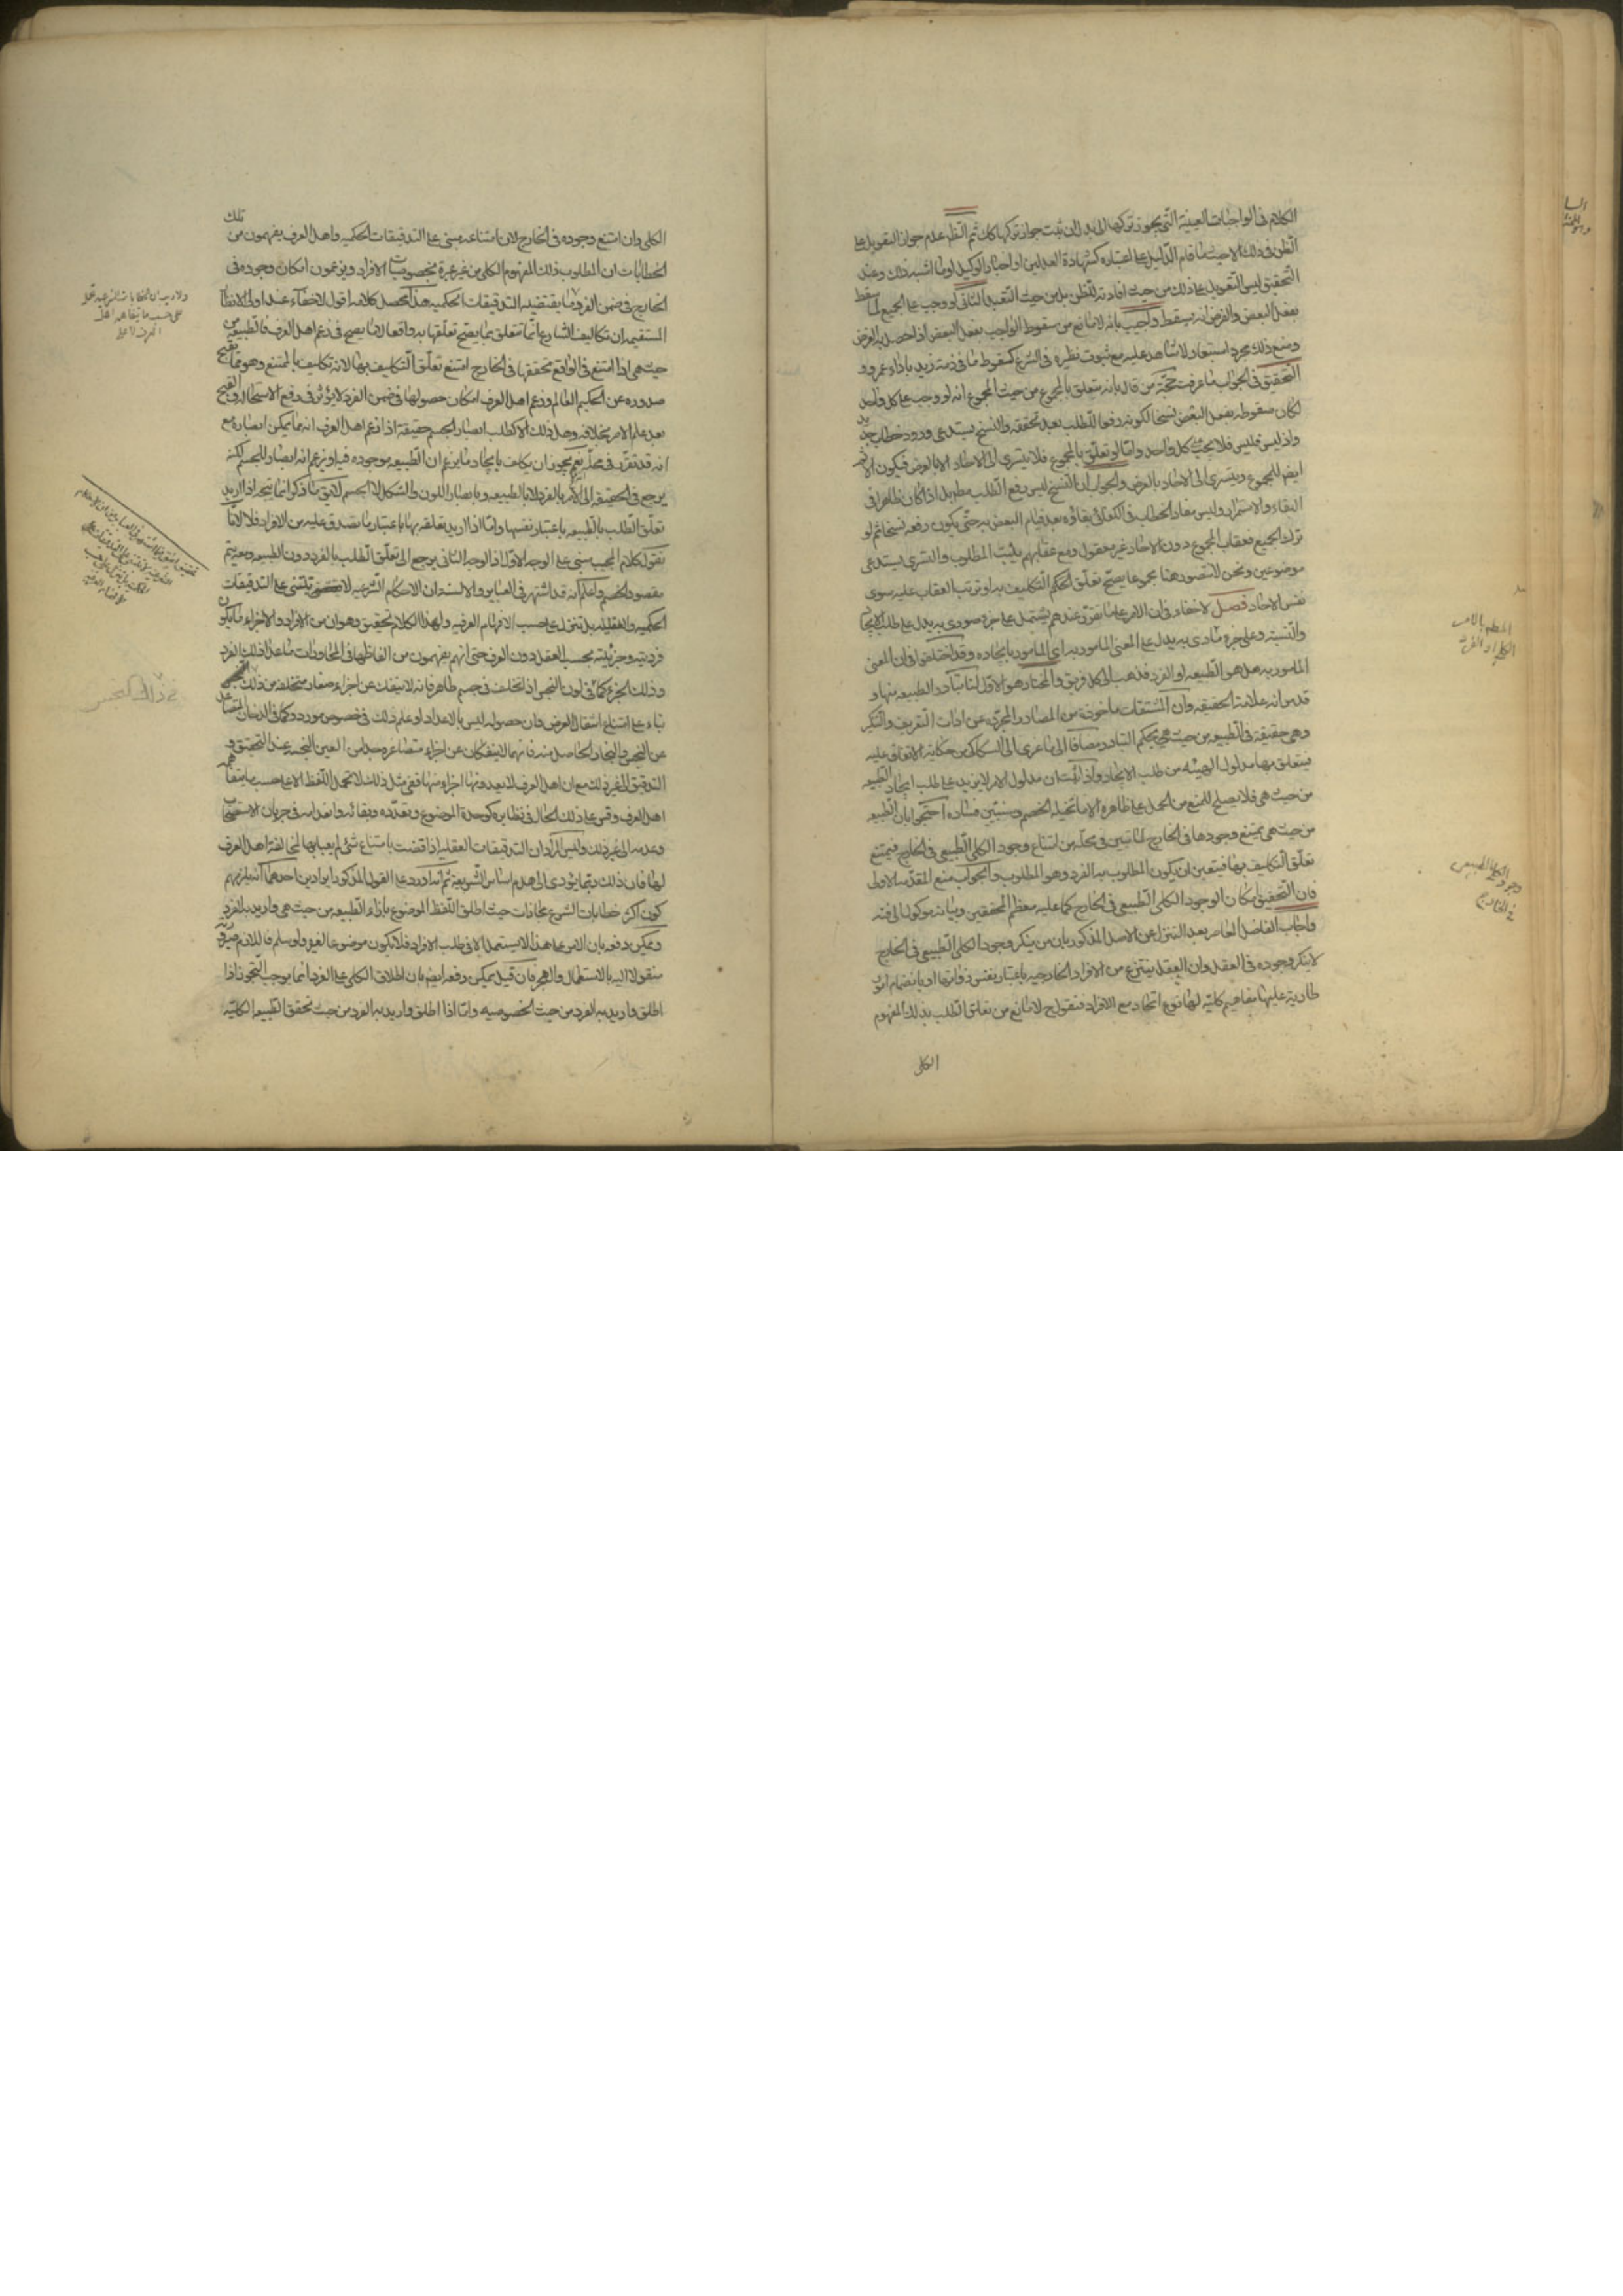 الكلام فى الواجبات العينية التى يجوز تركها الى بدل ان ثبت جواز تركها كان ثم الظ عدم جواز التعويل على
الظن فى ذلك الا حيث ما قام الدليل على اعتباره كشهادة العدلين او اخبار الوكيل او ما اشبه ذلك وعند
التحقيق ليس التعويل على ذلك من حيث افادته للظن بل من حيث التعبد الثانى لو وجب على الجميع لما سقط
بفعل البعض والفرض انه يسقط واجيب بانه لا مانع من سقوط الواجب بفعل البعض اذا حصل به الغرض
ومنع ذلك مجرد استبعاد لا شاهد عليه مع ثبوت نظيره فى الشرع كسقوط ما فى ذمة زيد باداء عمرو و
التحقيق فى الجواب ما عرفت حجة من قال بانه متعلق بالمجموع من حيث المجموع انه لو وجب على كل واحد
لكان سقوطه بفعل البعض نسخا لكونه رفعا للطلب بعد تحققه والنسخ يستدعى ورود خطاب جديد
واذ ليس فليس فلا يجب على كل واحد واما لو تعلق بالمجموع فلا يسرى الى الاحاد الا بالعرض فيكون الاثم
ايض للمجموع ويسرى الى الاحاد بالعرض والجواب ان النسخ ليس رفع الطلب مطم بل اذا كان ظاهرا فى
البقاء والاستمرار وليس مفاد الخطاب فى الكفائى بقاؤه بعد قيام البعض به حتى يكون رفعه نسخا ثم لو
ترك الجميع فعقاب المجموع دون الاحاد غير معقول ومع عقابهم يثبت المطلوب والتسرى يستدعى
موضوعين ونحن لا نتصور هنا مجموعا يصح تعلق الحكم التكليفى به او ترتب العقاب عليه سوى
نفس الاحاد فصل لا خفاء فى ان الامر على ما تقرر عندهم يشتمل على جزء صورى به يدل على طلب الايجاد
والنسبة وعلى جزء مادى به يدل على المعنى المامور به اى المامور بايجاده وقد اختلفوا فى ان المعنى
المامور به هل هو الطبيعه او الفرد فذهب الى كل فريق والمختار هو الاول لنا تبادر الطبيعه منها و
قد مر انه علامة الحقيقه وان المشتقات ماخوذة من المصادر المجردة عن ادات التعريف والتنكير
وهى حقيقة فى الطبيعه من حيث هى بحكم التبادر مضافا الى ما عزى الى السكاكى من حكاية الاتفاق عليه
فيتعلق بها مدلول الهيئه من طلب الايجاد واذا ثبت ان مدلول الامر لا يزيد على طلب ايجاد الطبيعه
من حيث هى فلا يصلح للمنع من الحمل على ظاهره الا ما تخيله الخصم وسنبين فساده احتجوا بان الطبيعه
من حيث هى يمتنع وجودها فى الخارج لما تبين فى محله من امتناع وجود الكلى الطبيعى فى الخارج فيمتنع
تعلق التكليف بها فيتعين ان يكون المطلوب به الفرد وهو المطلوب والجواب منع المقدمة الاولى
فان التحقيق امكان الوجود الكلى الطبيعى فى الخارج كما عليه معظم المحققين وبيانه موكول الى فنه
واجاب الفاضل المعاصر بعد التنزل عن الاصل المذكور بان من ينكر وجود الكلى الطبيعى فى الخارج
لا ينكر وجوده فى العقل وان العقل ينتزع من الافراد الخارجيه باعتبار نفس ذواتها او بانضمام امور
طارية عليها مفاهيم كلية لها نوع اتحاد مع الافراد فنقول ح لا مانع من تعلق الطلب بذلك المفهوم
الكلى
وجود الكلى الطبيعى
فى الخارج
الكلى وان امتنع وجوده فى الخارج لان امتناعه مبنى على التدقيقات الحكميه واهل العرف يفهمون من تلك
الخطابات ان المطلوب ذلك المفهوم الكلى من غير عبرة بخصوصيات الافراد ويزعمون امكان وجوده فى
الخارج فى ضمن الفرد بما يقتضيه التدقيقات الحكميه هذا محصل كلامه اقول لا خفاء عند اولى الانظار
المستقيمه ان تكاليف الشارع انما تتعلق بما يصح تعلقها به واقعا لا ما يصح فى زعم اهل العرف فالطبيعه من
حيث هى اذا امتنع فى الواقع تحققها فى الخارج امتنع تعلق التكليف بها لانه تكليف بالممتنع وهو مما يقبح
صدوره عن الحكيم العالم وزعم اهل العرف امكان حصولها فى ضمن الفرد لا يؤثر فى رفع الاستحاله والقبح
بعد علم الامر بخلافه وهل ذلك الا كطلب ابصار الجسم حقيقة اذا زعم اهل العرف انه مما يمكن ابصاره مع
انه قد تقرر فى محله نعم يجوز ان يكلف بايجاد ما يزعم ان الطبيعه موجوده فيه او يزعم انه ابصار للجسم لكنه
يرجع فى الحقيقه الى الامر بالفرد لا بالطبيعه وبابصار اللون والشكل لا الجسم لا يق ما ذكر انما يتجه اذا اريد
تعلق الطلب بالطبيعه باعتبار نفسها واما اذا اريد تعلقه بها باعتبار ما تصدق عليه من الافراد فلا لانا
نقول كلام المجيب مبنى على الوجه الاول اذ الوجه الثانى يرجع الى تعلق الطلب بالفرد دون الطبيعه ومعه يتم
مقصود الخصم واعلم انه قد اشتهر فى العباير والالسنه ان الاحكام الشرعيه لا تبتنى على التدقيقات
الحكميه والعقليه بل تتنزل على حسب الافهام العرفيه ولهذا الكلام تحقيق وهو ان من الافراد والاجزاء ما يكون
فرديته وجزئيته بحسب العقل دون العرف حتى انهم يفهمون من الفاظها فى المحاورات ما عدا ذلك الفرد
وذلك الجزء كما فى لون النجس اذا تخلف فى جسم طاهر فانه لا ينفك عن اجزاء صغار متخلفه من ذلك النجس
بناء على امتناع انتقال العرض وان حصوله ليس بالاعداد او علم ذلك فى خصوص مورد وكما فى الدخان المتصاعد
عن النجس والبخار الحاصل منه فانهما لا ينفكان عن اجزاء متصاعده جدا من العين النجسه عند التحقيق و
التدقيق الى غير ذلك مع ان اهل العرف لا يعدونها اجزاء منها ففى مثل ذلك لا تحمل اللفظ الا على حسب ما يتفاهمه
اهل العرف وقس على ذلك الحال فى نظايره كوحدة الموضوع وتعدده وبقائه وانعدامه فى جريان الاستصحاب
وعدمه الى غير ذلك وليس المراد ان التدقيقات العقليه اذا قضت بامتناع شئ لم يعبا بها لمخالفة اهل العرف
لها فان ذلك ربما يؤدى الى هدم اساس الشريعة ثم انه اورد على القول المذكور ايرادين احدهما انه يلزمهم
كون اكثر خطابات الشرع مجازات حيث اطلق اللفظ الموضوع بازاء الطبيعه من حيث هى واريد به الفرد
ويمكن دفعه بان الامر على هذا لا يستعمل الا فى طلب الافراد فلا يكون موضوعا لغيره ولو سلم فاللازم صيرورته
منقولا اليه بالاستعمال والهجر فان قيل يمكن دفعه ايض بان اطلاق الكلى على الفرد انما يوجب التجوز اذا
اطلق واريد به الفرد من حيث الخصوصيه واما اذا اطلق واريد به الفرد من حيث تحقق الطبيعه الكليه